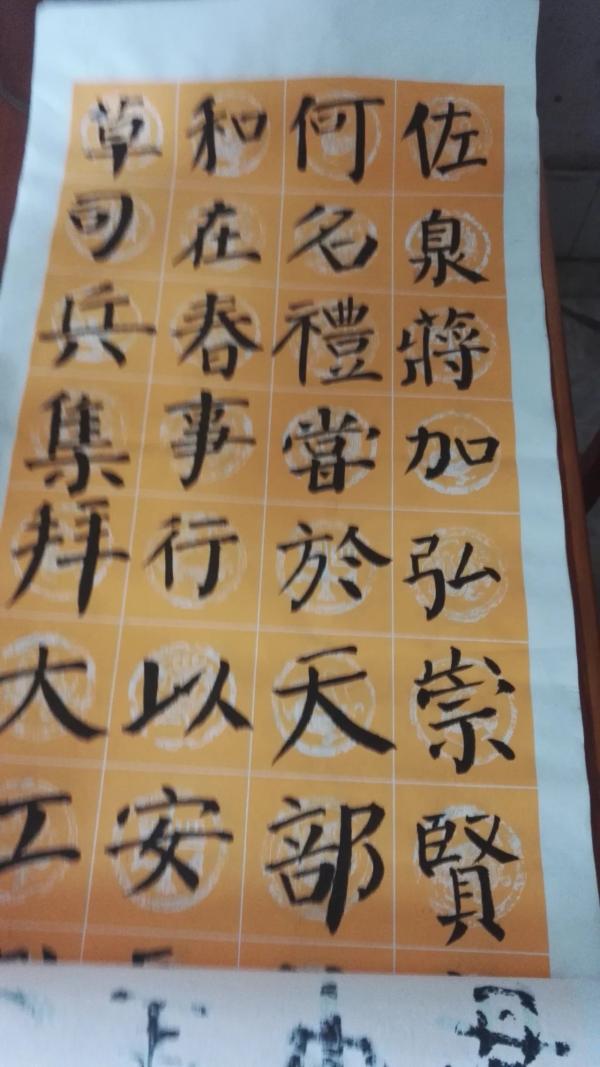 佐泉蔣加弘崇賢
何名禮當於天部
和在春事行以安
草司兵集拜大工